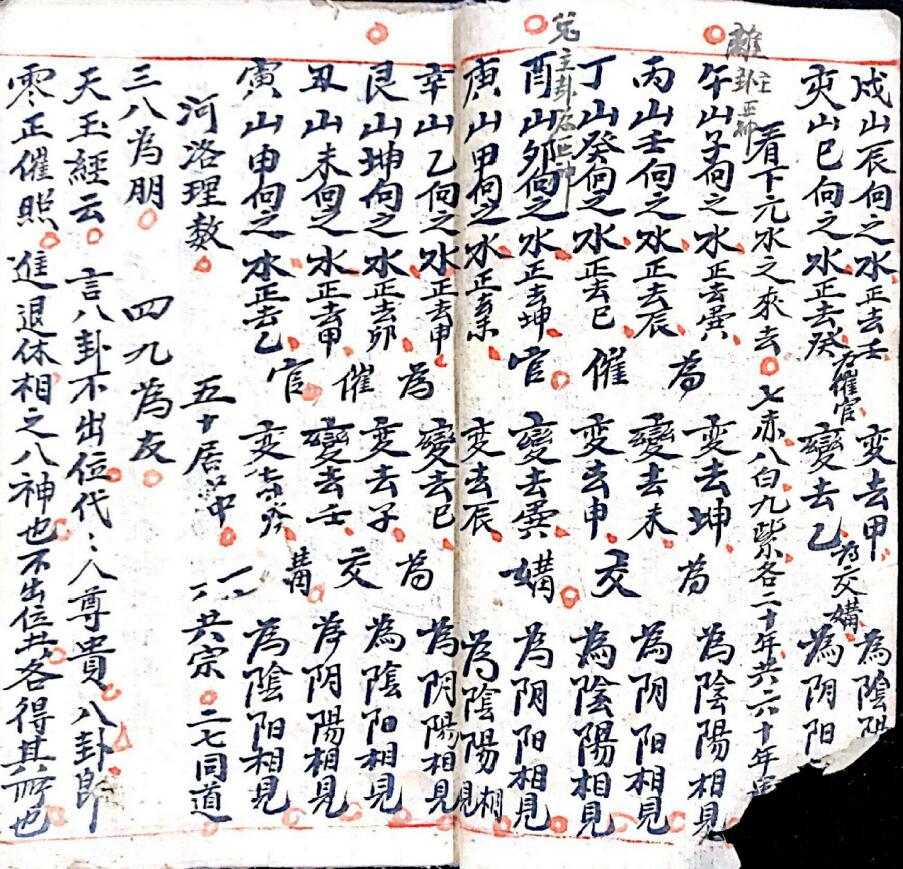 戍山辰向之水正去壬 为催官 变去甲 为交媾 為陰陽
亥山巳向之水正去癸 變去乙 為阴阳
離卦主正神
看下元水之來去 七赤八白九紫各二十年共六十年
午山子向之水正去巽 變去坤 為陰陽相見
丙山壬向之水正去辰 為 變去未 為 為阴阳相見
丁山癸向之水正去巳 催 变去申 交 為陰陽相見
兌主卦為正神
酉山卯向之水正去坤 官 變去巽 媾 為阴阳相見
庚山甲向之水正去未 变去辰 為陰陽相見
辛山乙向之水正去申 為 變去巳 為 為阴陽相見
艮山坤向之水正去卯 变去子 為陰阳相見
丑山未向之水正去甲 催 變去壬 交 為阴陽相見
寅山申向之水正去乙 官 变去癸 媾 為陰阳相見
河洛理数 五十居中 一六共宗 二七同道
三八為朋 四九為友
天玉經云 言八卦不出位代:人尊貴 八卦即
零正催照 進退休相之八神也不出位者各得其所也